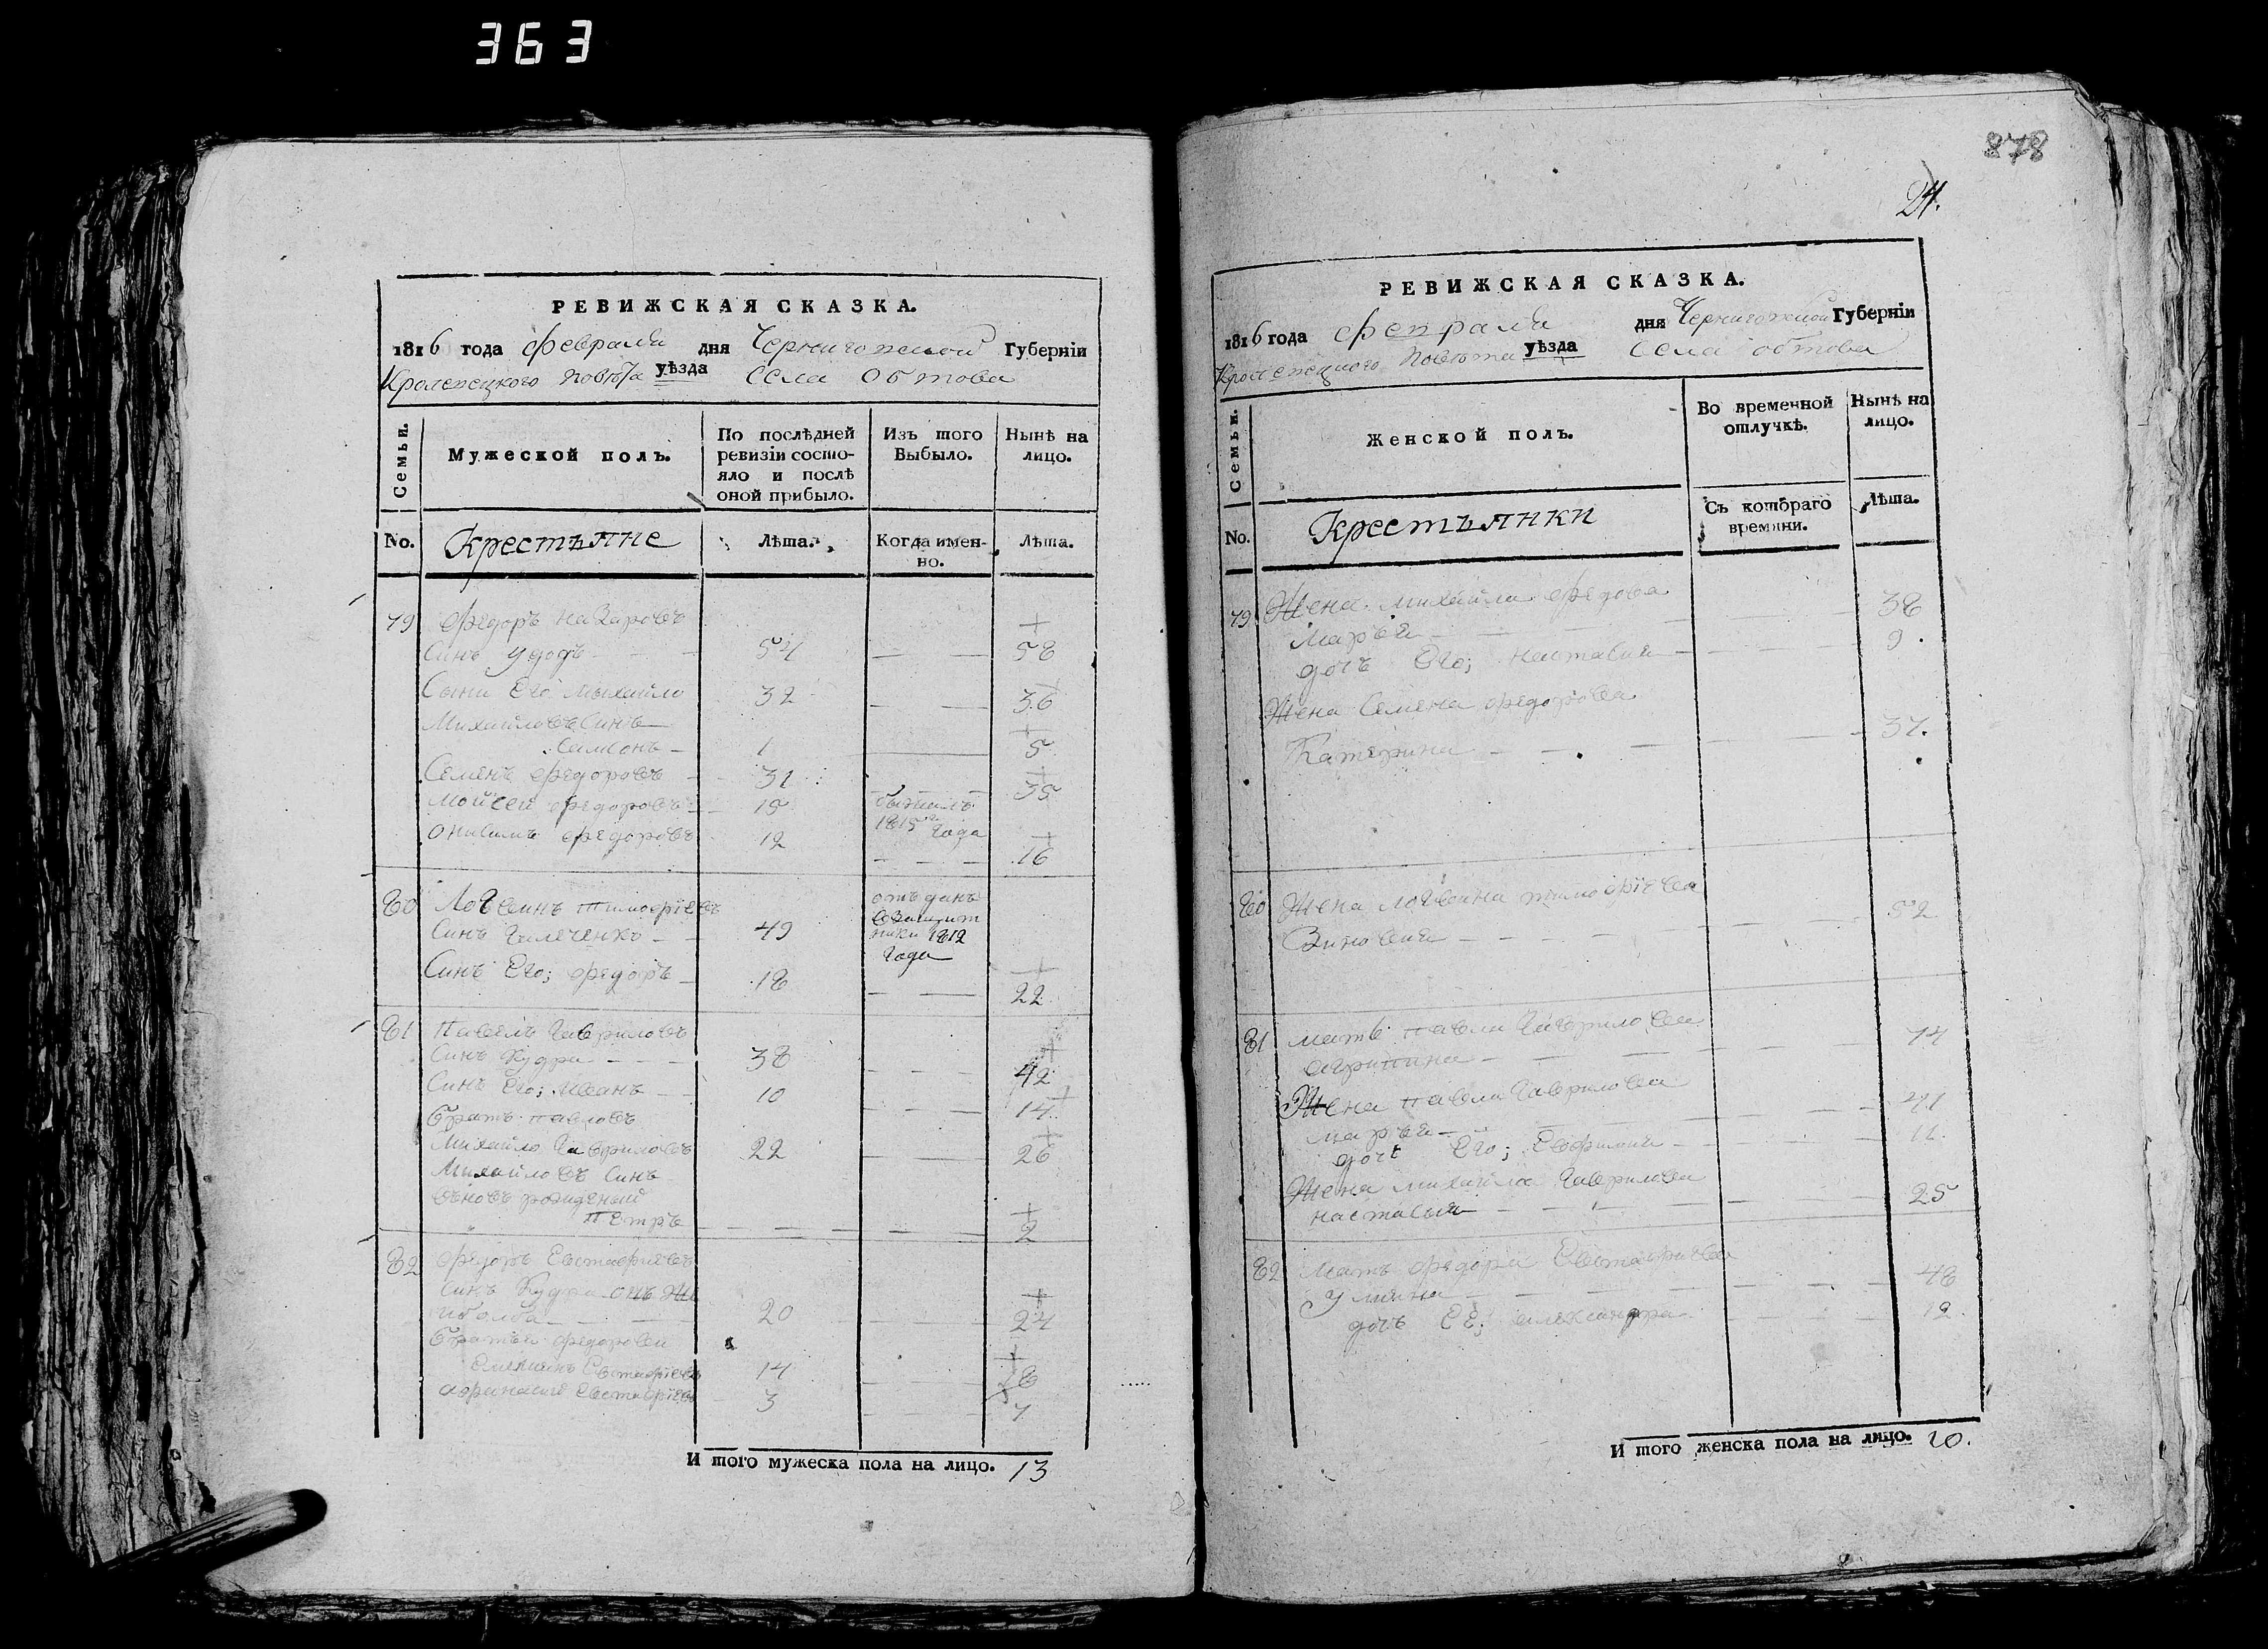 363
РЕВИЖСКАЯ СКАЗКА.
1816 года февраля дня Черниговской Губерніи
Кролевецкого повѣта уѣзда Села Обтова
Семьи.
Мужеской полъ.
По послѣдней ревизіи состояло и послѣ оной прибыло.
Изъ того Выбыло.
Нынѣ на лицо.
No.
Крестьяне
Лѣта.
Когда именно.
Лѣта.
79 Федоръ Назаровъ
Синъ Удодъ 54 58
Сыни Его Михайло 32 36
Михайловъ Синъ
Самсонъ 1 5
Семенъ Федоровъ 31 35
Мойсей Федоровъ 15 бѣжалъ 1815 года
Онисимъ Федоровъ 12 16
80 Логвинъ Тимофіевъ
Синъ Гилеченко 49 отъданъ
1812 года
Синъ Его; Федоръ 18 22
81 Павелъ Гавриловъ
Синъ Кудра 38 42
Синъ Его; Иванъ 10 14
Братъ Павловъ
Михайло Гавриловъ 22 26
Михайловъ Синъ
вновь рожденый
Петръ 2
82 Федоръ Евстафіевъ
Синъ Кудра онъ же
20 24
Братья Федорови
Евстафіевъ 14 18
Афанасій Евстафіевъ 3 7
И того мужеска пола на лицо. 13
878
24.
РЕВИЖСКАЯ СКАЗКА.
1816 года февраля дня Черниговской Губерніи
Кролевецкого повѣта уѣзда Села Обтова
Семьи.
Женской полъ.
Во временной отлучкѣ.
Нынѣ на лицо.
No.
Крестьянки
Съ котораго времяни.
Лѣта.
79 Жена Михайла Федорова
Марья 38
дочь Его; Настасия 9.
Жена Семена Федорова
Катерина 37.
80 Жена Логвина Тимофіева
Зиновия 52
81 мать Павла Гаврилова
Агрипина 74
Жена Павла Гаврилова
Марья 41
дочь Его; Евфимия 11.
Жена Михайла Гаврилова
Настасия 25
82 Мать Федора Евстафіева
Улияна 48
дочь Её; Александра 12.
И того женска пола на лицо. 10.